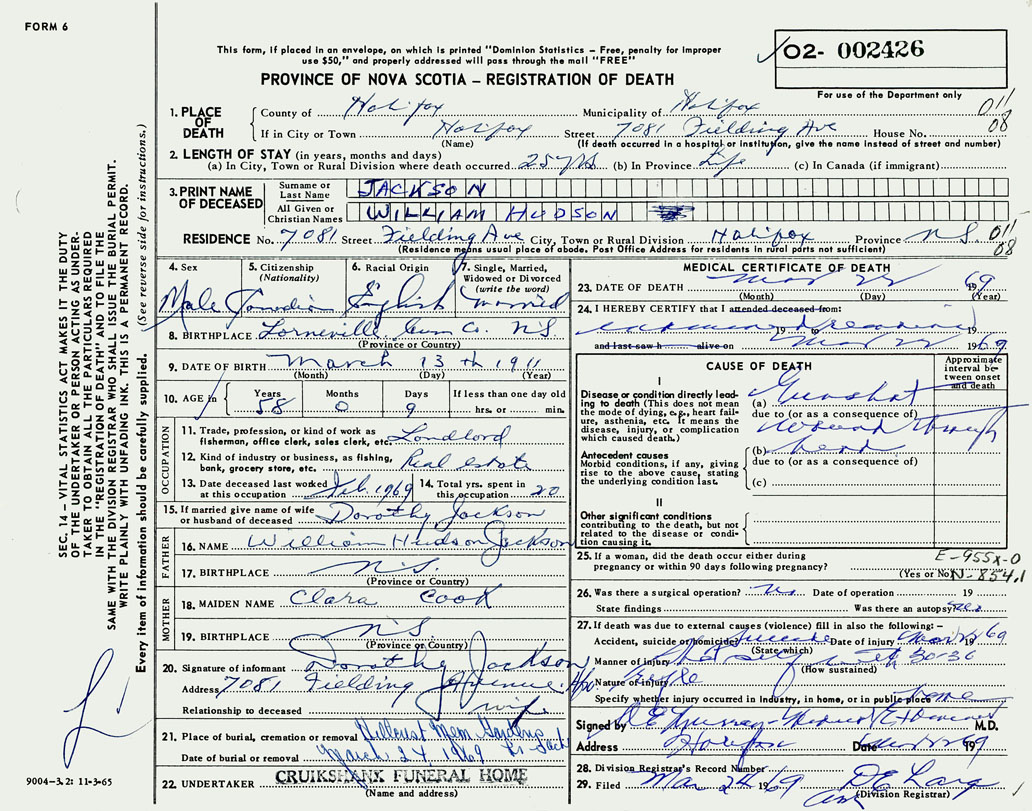 FORM 6
This form, if placed in an envelope, on which is printed "Dominion Statistics – Free, penalty for improper
use $50," and properly addressed will pass through the mail "FREE"
PROVINCE OF NOVA SCOTIA – REGISTRATION OF DEATH
02- 002426
For use of the Department only
1. PLACE OF DEATH
County of Halifax Municipality of Halifax 011
If in City or Town Halifax Street 7081 Fielding Ave House No. 08
(Name) (If death occurred in a hospital or institution, give the name instead of street and number)
2. LENGTH OF STAY (in years, months and days)
(a) In City, Town or Rural Division where death occurred 25 yrs (b) In Province Life (c) In Canada (if immigrant)
3. PRINT NAME OF DECEASED
Surname or Last Name JACKSON
All Given or Christian Names WILLIAM HUDSON
RESIDENCE No. 7081 Street Fielding Ave City, Town or Rural Division Halifax Province N.S. 011
08
(Residence means usual place of abode. Post Office Address for residents in rural parts not sufficient)
4. Sex
Male
5. Citizenship (Nationality)
Canadian
6. Racial Origin
English
7. Single, Married, Widowed or Divorced (write the word)
married
8. BIRTHPLACE Lorneville Cum Co. N S
(Province or Country)
9. DATE OF BIRTH March 13 th 1911
(Month) (Day) (Year)
10. AGE in
Years 58 Months 0 Days 9 If less than one day old
hrs. or min.
OCCUPATION
11. Trade, profession, or kind of work as fisherman, office clerk, sales clerk, etc. Landlord
12. Kind of industry or business, as fishing, bank, grocery store, etc. Real estate
13. Date deceased last worked at this occupation Feb. 1969
14. Total yrs. spent in this occupation 20
15. If married give name of wife or husband of deceased Dorothy Jackson
FATHER
16. NAME William Hudson Jackson
17. BIRTHPLACE N.S.
(Province or Country)
MOTHER
18. MAIDEN NAME Clara Cook
19. BIRTHPLACE N S
(Province or Country)
20. Signature of informant Dorothy Jackson
Address 7081 Fielding Avenue Hfx
Relationship to deceased wife
21. Place of burial, cremation or removal Hillcrest Mem Gardens
Date of burial or removal March 24 1969
22. UNDERTAKER CRUIKSHANK FUNERAL HOME
(Name and address)
MEDICAL CERTIFICATE OF DEATH
23. DATE OF DEATH Mar 22 1969
(Month) (Day) (Year)
24. I HEREBY CERTIFY that I attended deceased from:
examined 19 to 19
and last saw h alive on Mar 22 1969
CAUSE OF DEATH
Approximate interval between onset and death
I
Disease or condition directly leading to death (This does not mean the mode of dying, e.g., heart failure, asthenia, etc. It means the disease, injury, or complication which caused death.)
(a) Gunshot
due to (or as a consequence of)
wound through
Antecedent causes
Morbid conditions, if any, giving rise to the above cause, stating the underlying condition last.
(b) head
due to (or as a consequence of)
(c)
II
Other significant conditions contributing to the death, but not related to the disease or condition causing it.
25. If a woman, did the death occur either during pregnancy or within 90 days following pregnancy?
(Yes or No)
E-955X-0
N-854.1
26. Was there a surgical operation? No Date of operation 19
State findings Was there an autopsy?
27. If death was due to external causes (violence) fill in also the following:–
Accident, suicide or homicide? Suicide Date of injury Mar 22 1969
(State which)
Manner of injury Shot self with 30-30
(How sustained)
Nature of injury rifle
Specify whether injury occurred in industry, in home, or in public place home
Signed by Murray - Medical Examiner M.D.
Address Halifax Date Mar 22 1969
28. Division Registrar's Record Number
29. Filed Mar 24 1969
(Division Registrar)
9004–3.2: 11-3-65
SEC. 14 – VITAL STATISTICS ACT MAKES IT THE DUTY
OF THE UNDERTAKER OR PERSON ACTING AS UNDER-
TAKER TO OBTAIN ALL THE PARTICULARS REQUIRED
IN THE "REGISTRATION OF DEATH" AND TO FILE THE
SAME WITH THE DIVISION REGISTRAR WHO SHALL ISSUE THE BURIAL PERMIT.
WRITE PLAINLY WITH UNFADING INK. THIS IS A PERMANENT RECORD.
Every item of information should be carefully supplied. (See reverse side for instructions.)